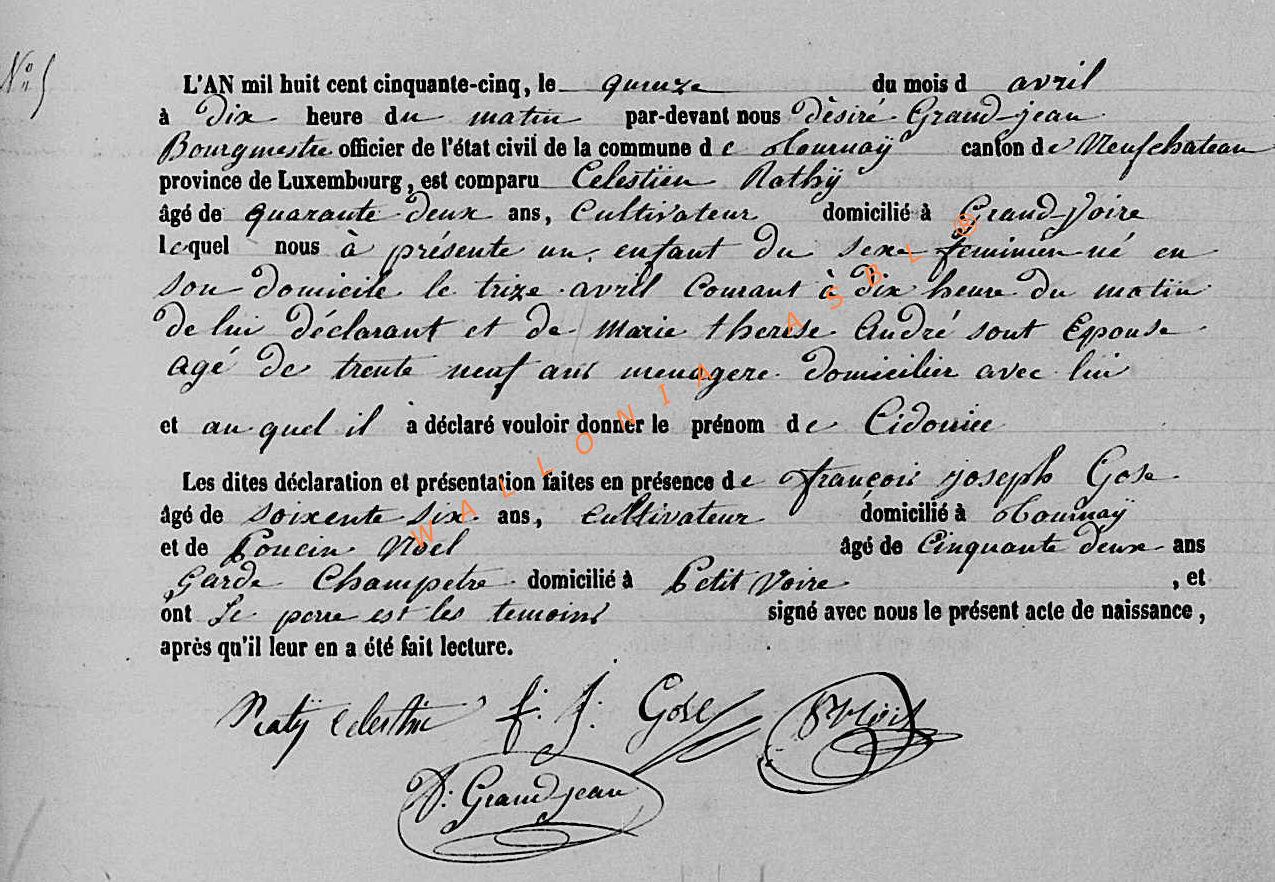 N° 5
L'AN mil huit cent cinquante-cinq, le quinze du mois d avril
à dix heure du matin par-devant nous Dèsiré Grand-jean
Bourgmestre officier de l'état civil de la commune de Tournaÿ canton de Neufchateau
province de Luxembourg, est comparu Celestien Rathÿ
âgé de quarante deux ans, Cultivateur domicilié à Grand-Voire
lequel nous à présente un enfant du sexe feminin né en
son domicile le trize avril Courant à dix heure du matin
de lui déclarant et de Marie therese André sont Epouse
agé de trente neuf ans menagere domicilier avec lui
et au quel il a déclaré vouloir donner le prénom de
Les dites déclaration et présentation faites en présence de françois joseph Gose
âgé de soixente six ans, Cultivateur domicilié à Tournaÿ
et de Poncin Noel âgé de Cinquante deux ans
Garde Champetre domicilié à Petit Voire , et
ont Le perre est les temoins signé avec nous le présent acte de naissance,
après qu'il leur en a été fait lecture.
Ratÿ Celestin f. J. Gose
D. Grandjean
WALLONIA ASBL ®